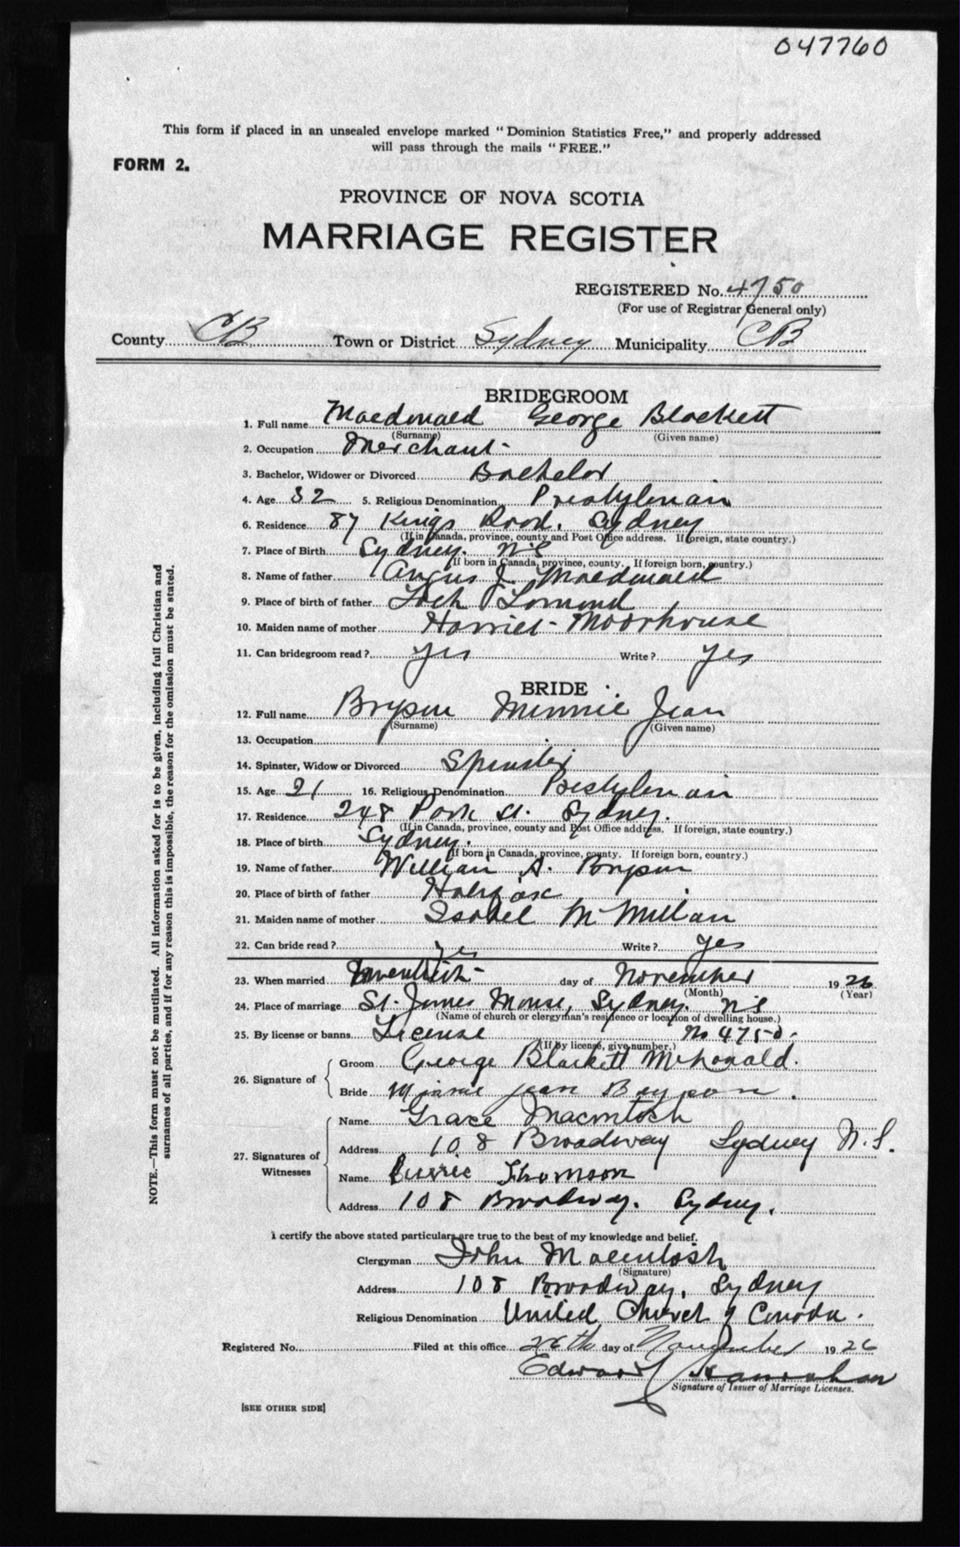 047760
This form if placed in an unsealed envelope marked "Dominion Statistics Free," and properly addressed
will pass through the mails "FREE."
FORM 2.
PROVINCE OF NOVA SCOTIA
MARRIAGE REGISTER
REGISTERED No. 4750
(For use of Registrar General only)
County CB Town or District Sydney Municipality CB
BRIDEGROOM
1. Full name Macdonald George Blackett
(Surname) (Given name)
2. Occupation Merchant
3. Bachelor, Widower or Divorced Bachelor
4. Age 32 5. Religious Denomination Presbyterian
6. Residence 87 Kings Road, Sydney
(If in Canada, province, county and Post Office address. If foreign, state country.)
7. Place of Birth Sydney. NS
(If born in Canada, province, county. If foreign born, country.)
8. Name of father Angus J. Macdonald
9. Place of birth of father Loch Lomond
10. Maiden name of mother Harriet Moorhouse
11. Can bridegroom read? yes Write? yes
BRIDE
12. Full name Bryson Minnie Jean
(Surname) (Given name)
13. Occupation
14. Spinster, Widow or Divorced Spinster
15. Age 21 16. Religious Denomination Presbyterian
17. Residence 248 Park St. Sydney.
(If in Canada, province, county and Post Office address. If foreign, state country.)
18. Place of birth Sydney.
(If born in Canada, province, county. If foreign born, country.)
19. Name of father William A. Bryson
20. Place of birth of father Halifax
21. Maiden name of mother Isabel McMillan
22. Can bride read? Yes Write? yes
23. When married day of November 1926
(Month) (Year)
24. Place of marriage St. James Manse, Sydney. NS
(Name of church or clergyman's residence or location of dwelling house.)
25. By license or banns License No 4750.
(If by license, give number.)
26. Signature of
Groom George Blackett McDonald.
Bride Minnie Jean Bryson.
27. Signatures of Witnesses
Name Grace Macintosh
Address 108 Broadway Sydney N.S.
Name Thomson
Address 108 Broadway. Sydney.
I certify the above stated particulars are true to the best of my knowledge and belief.
Clergyman John Macintosh
(Signature)
Address 108 Broadway, Sydney
Religious Denomination United Church of Canada.
Registered No. Filed at this office 26th day of November 1926
Edward Hanrahan
Signature of Issuer of Marriage Licenses.
[SEE OTHER SIDE]
NOTE.—This form must not be mutilated. All information asked for is to be given, including full Christian and
surnames of all parties, and if for any reason this is impossible, the reason for the omission must be stated.